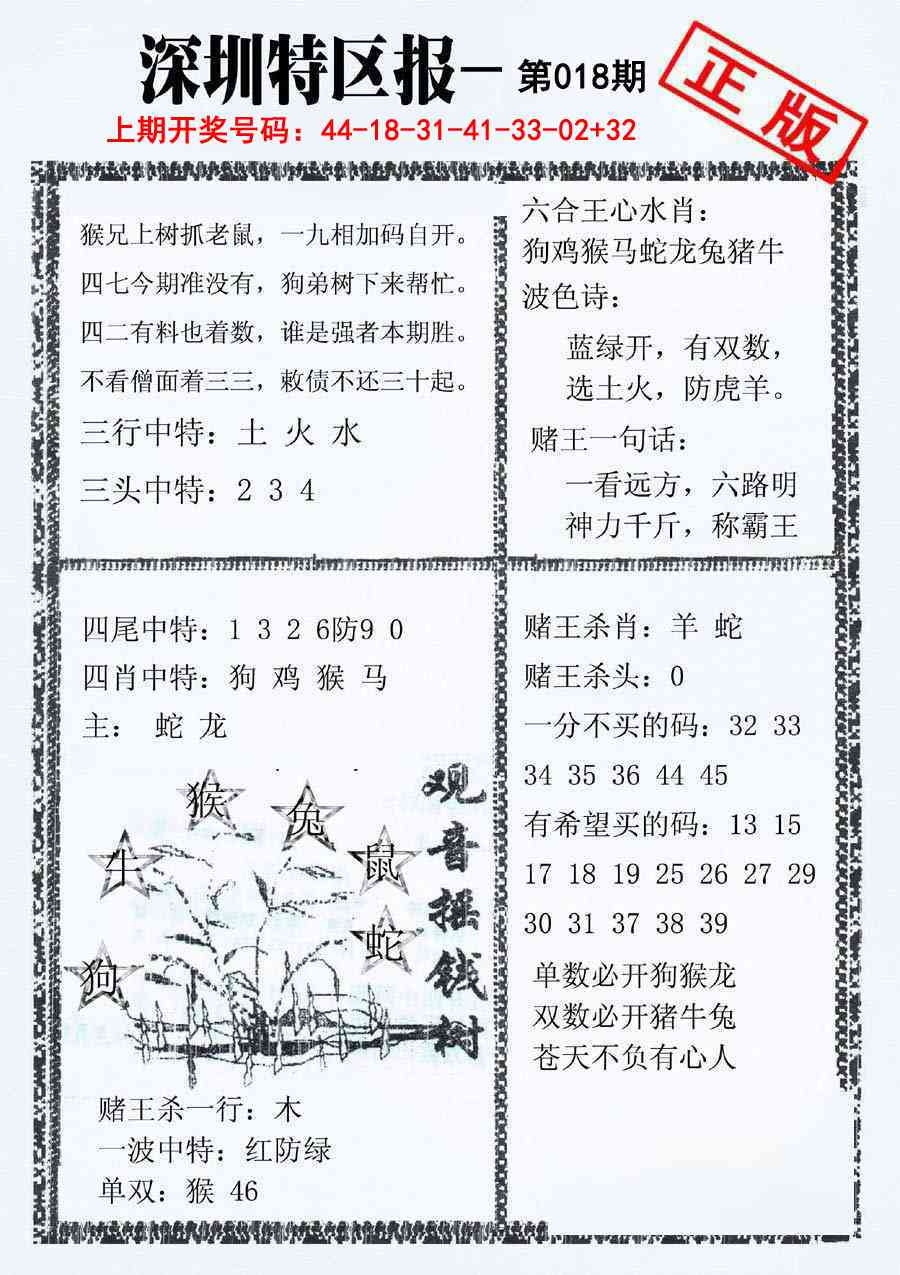 深圳特区报一 第018期
正版
上期开奖号码：44-18-31-41-33-02+32
猴兄上树抓老鼠，一九相加码自开。
四七今期准没有，狗弟树下来帮忙。
四二有料也着数，谁是强者本期胜。
不看僧面着三三，敕债不还三十起。
三行中特：土 火 水
三头中特：2 3 4
六合王心水肖：
狗鸡猴马蛇龙兔猪牛
波色诗：
蓝绿开，有双数，
选土火，防虎羊。
赌王一句话：
一看远方，六路明
神力千斤，称霸王
四尾中特：1 3 2 6防9 0
四肖中特：狗 鸡 猴 马
主： 蛇 龙
猴
兔
牛
鼠
蛇
狗
观音摇钱树
赌王杀一行：木
一波中特：红防绿
单双：猴 46
赌王杀肖：羊 蛇
赌王杀头：0
一分不买的码：32 33
34 35 36 44 45
有希望买的码：13 15
17 18 19 25 26 27 29
30 31 37 38 39
单数必开狗猴龙
双数必开猪牛兔
苍天不负有心人